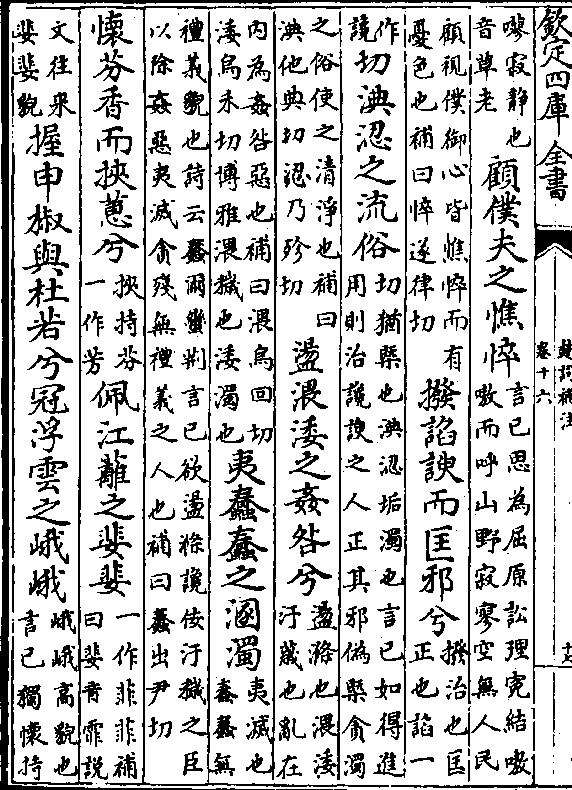 欽定四庫全書
楚詞補注
卷十六
嘐寂靜也
音草老
顧僕夫之憔悴
言已思為屈原訟理寃結嗷
嗷而呼山野寂寥空無人民
顧視僕御心皆憔悴而有
憂色也補曰悴遂律切
撥諂諛而匡邪兮
撥治也匡
正也諂一
作
讒
切淟涊之流俗
切猶槩也淟涊垢濁也言已如得進
用則治讒諛之人正其邪偽槩貪濁
之俗使之清淨也補曰
淟他典切涊乃殄切
盪渨涹之姦咎兮
盪滌也渨涹
汙薉也亂在
內為姦咎惡也補曰渨烏回切
涹烏禾切博雅渨穢也涹濁也
夷蠢蠢之溷濁
夷滅也
蠢蠢無
禮義貌也詩云蠢爾蠻荆言已欲盪滌讒佞汙穢之臣
以除姦惡夷滅貪殘無禮義之人也補曰蠢出尹切
懷芬香而挾蕙兮
挾持芬
一作芳
佩江蘺之斐斐
一作菲菲補
曰斐音霏説
文往來
斐斐貌
握申椒與杜若兮冠浮雲之峨峨
峨峨高貌也
言已獨懷持